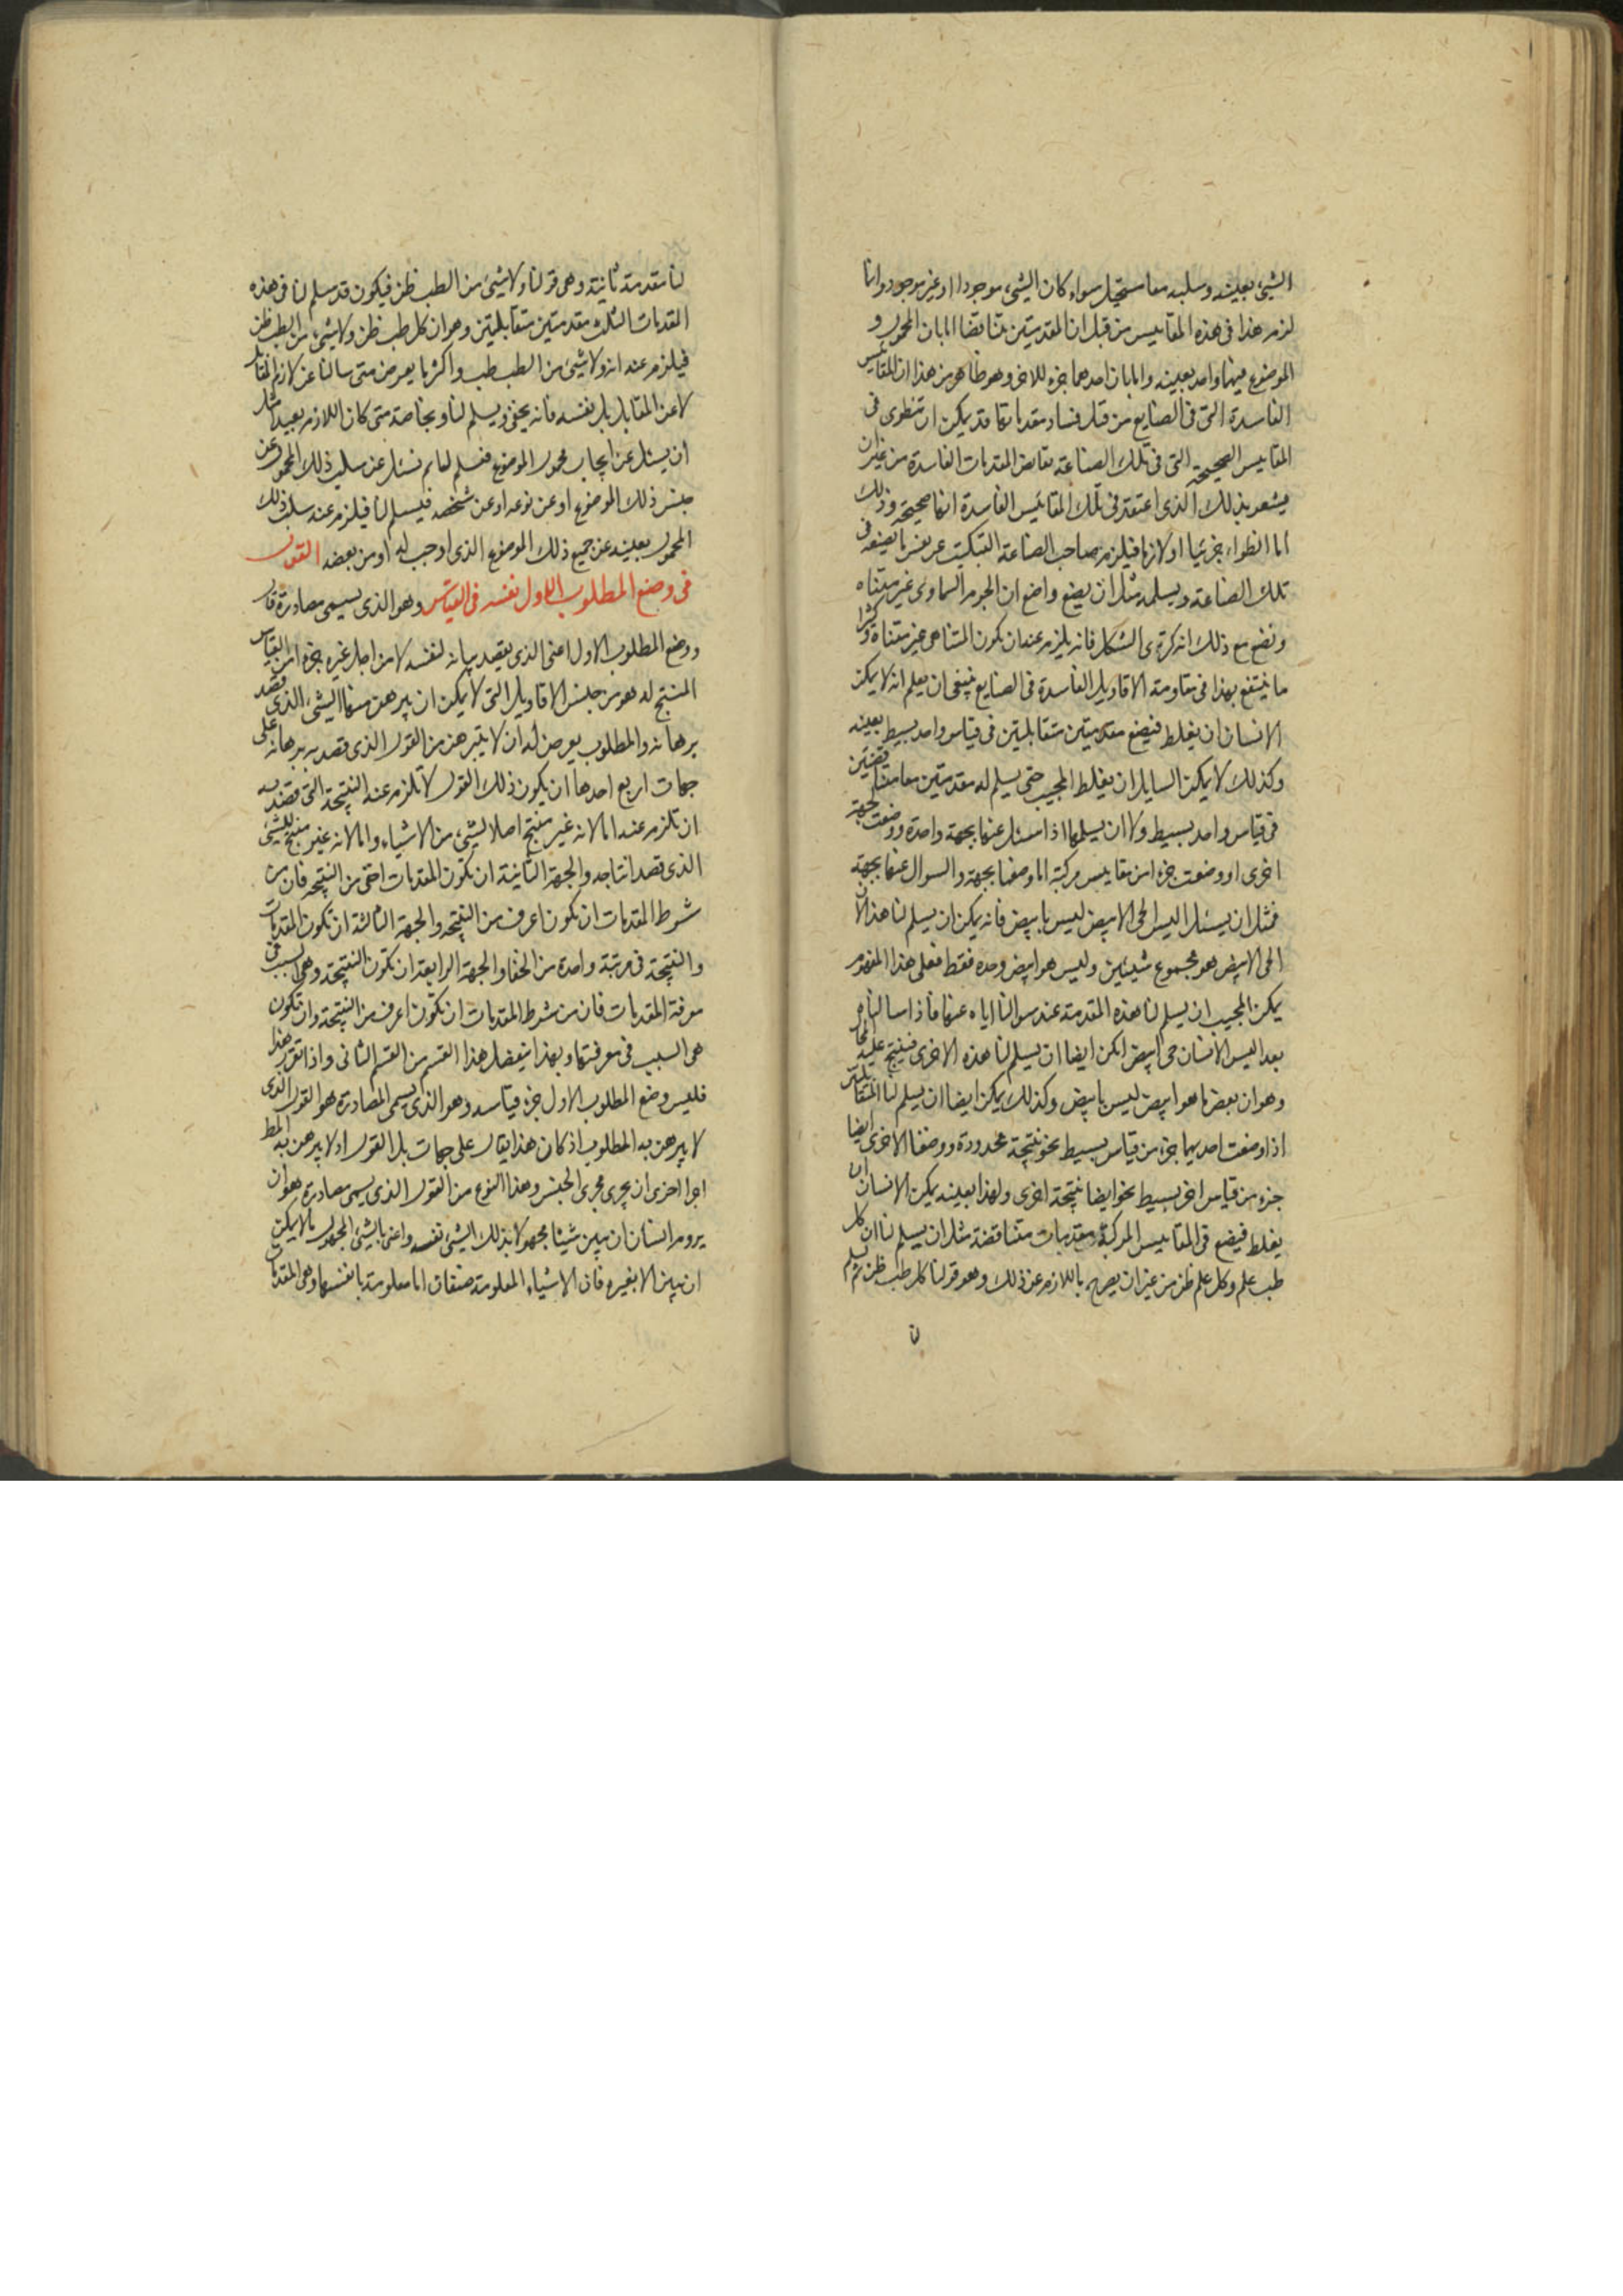 الشئ بعينه وسلبه معا مستحيل سواء كان الشئ موجودا او غير موجود وانما
لزم هذا فى هذه المقاييس من قبل ان المقدمتين تناقضا اما بان المحمول و
الموضوع فيهما واحد بعينه واما بان احدهما جزء للاخر وهو ظاهر من هذا ان المقاييس
الفاسدة التى فى الصنايع من قبل فساد مقدماتها قد يمكن ان تنطوى فى
المقاييس الصحيحة التى فى تلك الصناعة نقايض المقدمات الفاسدة من غير ان
يشعر بذلك الذى اعتقد فى تلك المقائيس الفاسدة انها صحيحة وذلك
اما انطواء جزئيا او لازما فيلزم صاحب الصناعة التبكيت عن نفس ما يضعه فى
تلك الصناعة ويسلمه مثل ان يضع واضع ان الجرم السماوى غير متناه
ونضع مع ذلك انه كرى الشكل فانه يلزم عنه ان يكون المتناهى غير متناه وكثيرا
ما ينتفع بهذا فى مقاومة الاقاويل الفاسدة فى الصنايع فينبغى ان يعلم انه لا يمكن
الانسان ان يغلط فيضع مقدمتين متقابلتين فى قياس واحد بسيط بعينه
وكذلك لا يمكن السايل ان يغلط المجيب حتى يسلم له مقدمتين معا متناقضتين
فى قياس واحد بسيط ولا ان يسلمها اذا سئل عنها بجهة واحدة ووضعت بجهة
اخرى او وضعت جزء من مقاييس مركبة اما وضعها بجهة والسوال عنها بجهة
فمثل ان يسئل اليس الحى الابيض ليس بابيض فانه يمكن ان يسلم لنا هذا لان
الحى الابيض هو مجموع شيئين وليس هو ابيض وحده فقط فعلى هذا المفهوم
يمكن المجيب ان يسلم لنا هذه المقدمة عند سوالنا اياه عنها فاذا سالناه
بعد اليس الانسان حى ابيض امكن ايضا ان يسلم لنا هذه الاخرى فينتج عليه
وهو ان بعض ما هو ابيض ليس بابيض وكذلك يمكن ايضا ان يسلم لنا المتقابلتين
اذا وضعت احديهما جزء من قياس بسيط نحو نتيجة محدودة ووضعنا الاخرى ايضا
جزء من قياس اخر بسيط نحو ايضا نتيجة اخرى ولهذا بعينه يمكن الانسان ان
يغلط فيضع فى المقاييس المركبة مقدمات متناقضة مثل ان يسلم لنا ان كل
طب علم وكل علم ظن من غير ان يصرح باللازم عن ذلك وهو قولنا كل طب ظن ثم يسلم
لنا مقدمة ثانية وهى قولنا ولا شئ من الطب ظن فيكون قد سلم لنا فى هذه
المقدمات الثلث مقدمتين متقابلتين وهو ان كل طب ظن ولا شئ من الطب ظن
فيلزم عنه انه ولا شئ من الطب طب واكثر ما يعرض متى سالنا عن لازم المقابل
لا عن المقابل بل بنفسه فانه يخفى ويسلم لنا وبخاصة متى كان اللازم بعيدا مثل
ان يسئل عن ايجاب محمول الموضوع فنسلم لهما ثم نسئل عن سلب ذلك المحمول عن
جنس ذلك الموضوع او عن نوعه او عن شخصه فيسلم لنا فيلزم عنه سلب ذلك
المحمول بعينه عن جميع ذلك الموضوع الذى اوجب له او من بعضه القول
فى وضع المطلوب الاول نفسه فى القياس وهو الذى يسمى مصادرة قال
ووضع المطلوب الاول اعنى الذى يقصد بيانه لنفسه لا من اجل غيره جزء من القياس
المنتج له هو من جنس الاقاويل التى لا يمكن ان يبرهن منها الشئ الذى قصد
برهانه والمطلوب يعرض له ان لا يتبرهن من القول الذى قصد به برهانه على
جهات اربع احدها ان يكون ذلك القول لا تلزم عنه النتيجة التى قصد به
ان تلزم عنه اما لانه غير منتج اصلا لشئ من الاشياء واما لانه غير منتج للشئ
الذى قصد انتاجه والجهة الثانية ان تكون المقدمات اخفى من النتيجة فان من
شرط المقدمات ان تكون اعرف من النتيجة والجهة الثالثة ان تكون المقدمات
والنتيجة فى مرتبة واحدة من الخفا والجهة الرابعة ان تكون النتيجة وهى السبب فى
معرفة المقدمات فان من شرط المقدمات ان تكون اعرف من النتيجة وان تكون
هى السبب فى معرفتها وبهذا ينفصل هذا القسم من القسم الثانى واذا تقرر هذا
فليس وضع المطلوب الاول جزء قياسه وهو الذى يسمى المصادرة هو القول الذى
لا يبرهن به المطلوب اذ كان هذا يقال على جهات بل القول اولا يبرهن به المط
اجرا احرى ان يجرى مجرى الجنس وهذا النوع من القول الذى يسمى مصادرة هو ان
يروم انسان ان يبين شيئا مجهولا بذلك الشئ نفسه واعنى بالشئ المجهول ما لا يمكن
ان يبين الا بغيره فان الاشياء المعلومة صنفان اما معلومة بانفسها وهى المقدمات